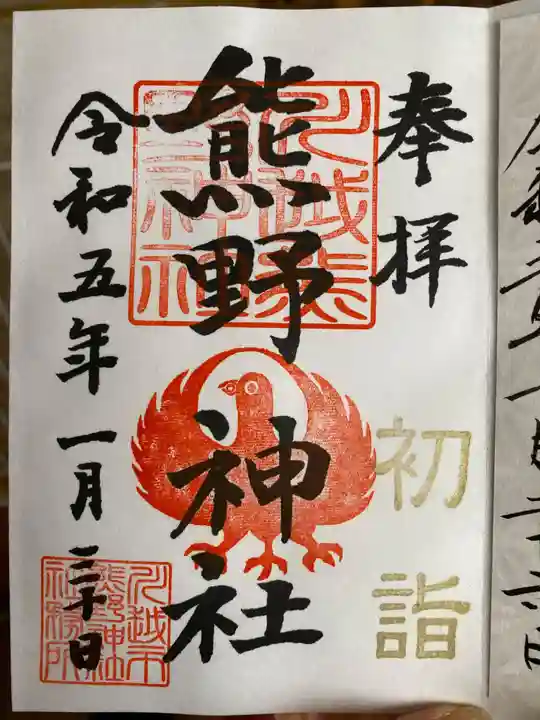 奉拝
初詣
熊野神社
川越熊野神社
令和五年一月三十日
川越市熊野神社社務所